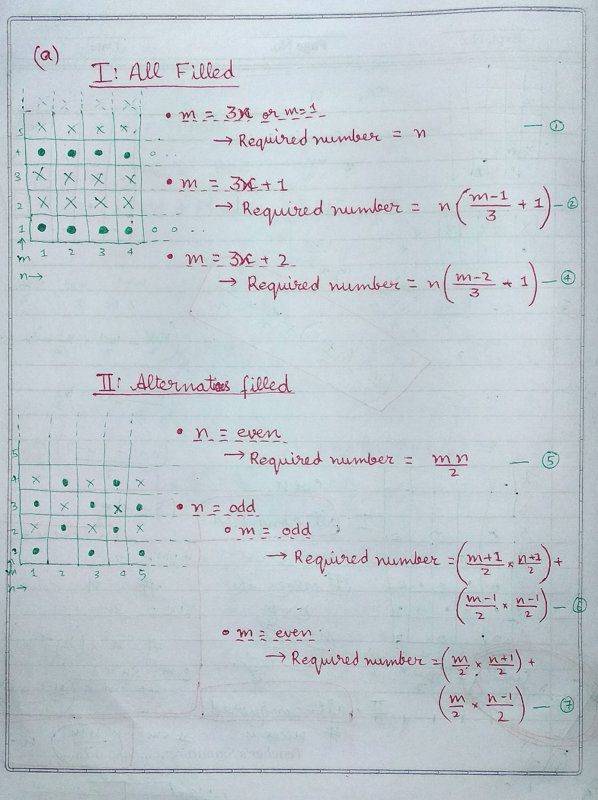 (a)
I: All Filled
• m = 3x or m=1
→ Required number = n — ①
• m = 3x+1
→ Required number = n((m-1)/3 + 1) — ②
• m = 3x + 2
→ Required number = n((m-2)/3 + 1) — ④
5
4
3
2
1
m 1 2 3 4
n→
II: Alternates filled
• n = even
→ Required number = mn/2 — ⑤
• n = odd
• m = odd
→ Required number = ((m+1)/2 × (n+1)/2) +
((m-1)/2 × (n-1)/2) — ⑥
• m = even
→ Required number = (m/2 × (n+1)/2) +
(m/2 × (n-1)/2) — ⑦
5
4
3
2
m 1 2 3 4 5
n→